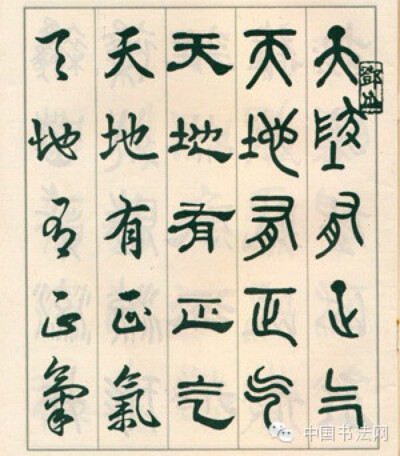 天地有正气
天地有正气
天地有正气
天地有正氣
天地有正氣
中国书法网